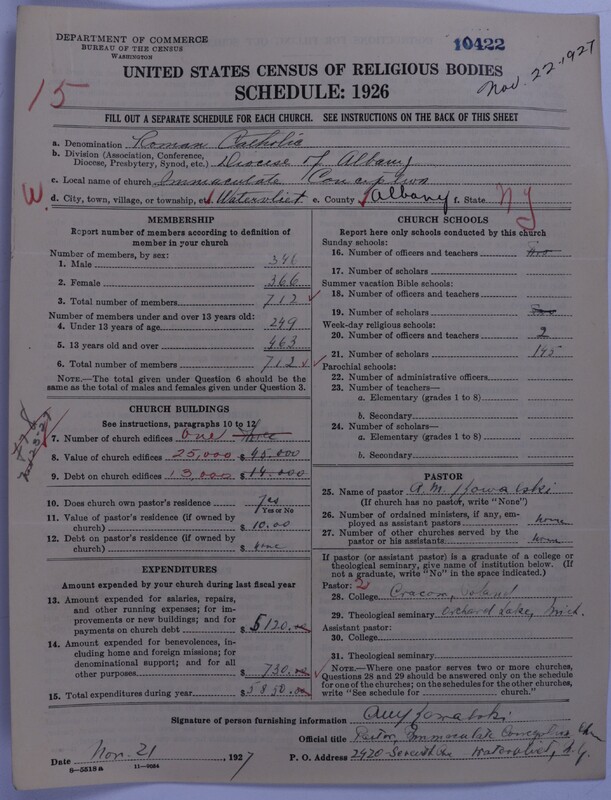 DEPARTMENT OF COMMERCE
BUREAU OF THE CENSUS
WASHINGTON
10422
Nov. 22-1927
15
UNITED STATES CENSUS OF RELIGIOUS BODIES
SCHEDULE: 1926
FILL OUT A SEPARATE SCHEDULE FOR EACH CHURCH. SEE INSTRUCTIONS ON THE BACK OF THIS SHEET
a. Denomination Roman Catholic
b. Division (Association, Conference,
Diocese, Presbytery, Synod, etc.) Diocese of Albany
c. Local name of church Immaculate Conception
W.
d. City, town, village, or township, etc. Watervliet e. County Albany f. State NY
MEMBERSHIP
Report number of members according to definition of
member in your church
Number of members, by sex:
1. Male 346
2. Female 366
3. Total number of members 712
Number of members under and over 13 years old:
4. Under 13 years of age 249
5. 13 years old and over 463
6. Total number of members 712
NOTE.—The total given under Question 6 should be the
same as the total of males and females given under Question 3.
CHURCH BUILDINGS
See instructions, paragraphs 10 to 12
7. Number of church edifices one Three
8. Value of church edifices 25,000 $45.000
9. Debt on church edifices 13,000 $14.000
10. Does church own pastor's residence? Yes
Yes or No
11. Value of pastor's residence (if owned by
church) $10.00
12. Debt on pastor's residence (if owned by
church) $ none
EXPENDITURES
Amount expended by your church during last fiscal year
13. Amount expended for salaries, repairs,
and other running expenses; for im-
provements or new buildings; and for
payments on church debt $5120.00
14. Amount expended for benevolences,
including home and foreign missions; for
denominational support; and for all
other purposes 730.00
15. Total expenditures during year $5850.00
CHURCH SCHOOLS
Report here only schools conducted by this church
Sunday schools:
16. Number of officers and teachers
17. Number of scholars
Summer vacation Bible schools:
18. Number of officers and teachers
19. Number of scholars
Week-day religious schools:
20. Number of officers and teachers 2
21. Number of scholars 145
Parochial schools:
22. Number of administrative officers
23. Number of teachers—
a. Elementary (grades 1 to 8)
b. Secondary
24. Number of scholars—
a. Elementary (grades 1 to 8)
b. Secondary
PASTOR
25. Name of pastor A.M. Kowalski
(If church has no pastor, write "None")
26. Number of ordained ministers, if any, em-
ployed as assistant pastors none
27. Number of other churches served by the
pastor or his assistants none
If pastor (or assistant pastor) is a graduate of a college or
theological seminary, give name of institution below. (If
not a graduate, write "No" in the space indicated.)
Pastor: 2
28. College Cracow, Poland
29. Theological seminary Orchard Lake, Mich.
Assistant pastor:
30. College
31. Theological seminary
NOTE.—Where one pastor serves two or more churches,
Questions 28 and 29 should be answered only on the schedule
for one of the churches; on the schedules for the other churches,
write "See schedule for church."
Signature of person furnishing information AMKowalski
Official title Pastor, Immaculate Conception Chu
Date Nov. 21, 1927 P. O. Address 2420-Seventh Ave Watervliet, N.Y.
8—5518 a 11—9084